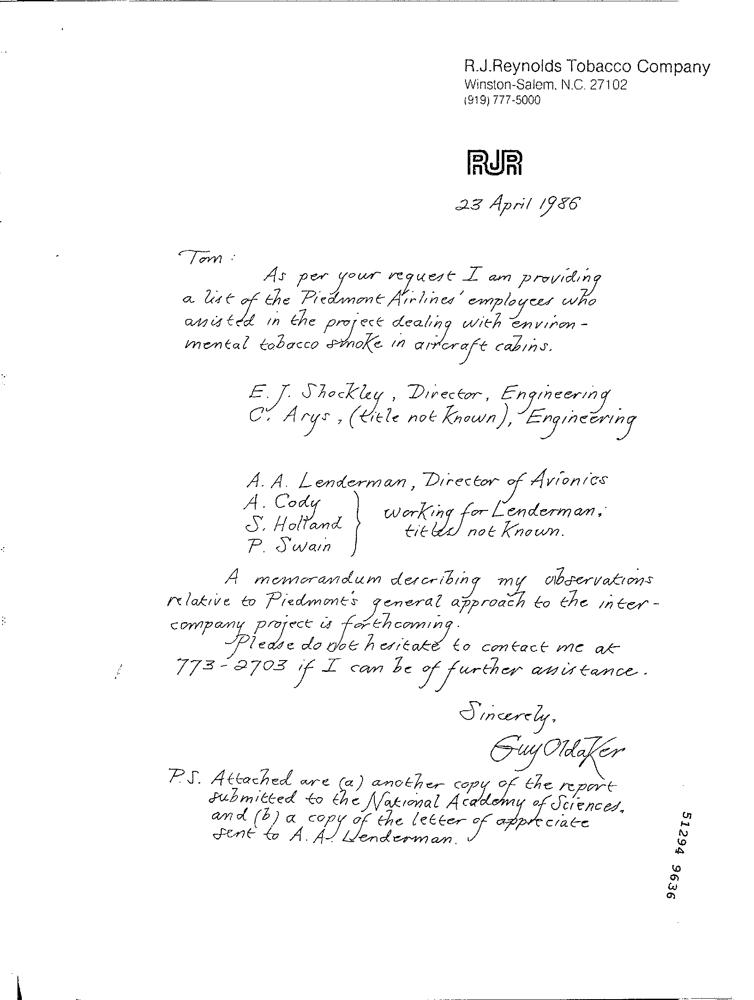 R.J.Reynolds Tobacco Company
Winston-Salem, N.C. 27102
(919) 777-5000
RJR
23 April 1986
Tom :
As per your request I am providing
a list of the Piedmont Airlines' employees who
assisted in the project dealing with environ-
mental tobacco smoke in aircraft cabins.
E. J. Shockley, Director, Engineering
C. Arys, (title not known), Engineering
A. A. Lenderman, Director of Avionics
A. Cody
S. Holland
P. Swain
working for Lenderman,
titles not known.
A memorandum describing my observations
relative to Piedmont's general approach to the inter-
company project is forthcoming.
Please do not hesitate to contact me at
773-2703 if I can be of further assistance.
Sincerely,
Guy Oldaker
P.S. Attached are (a) another copy of the report
submitted to the National Academy of Sciences,
and (b) a copy of the letter of appreciate
sent to A. A. Lenderman.
51294 9636